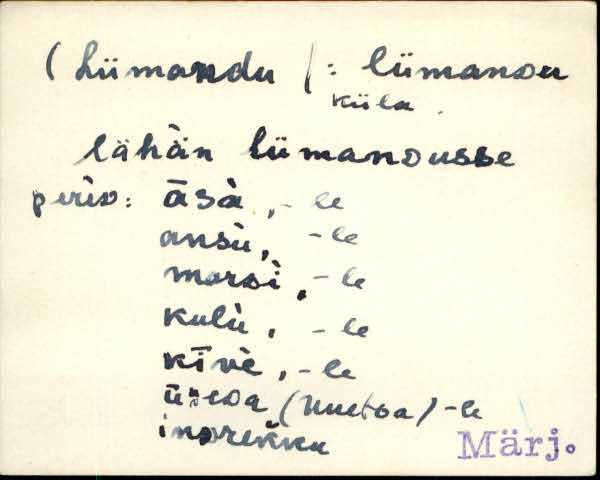 (Liimandu) : liimandu
küla.
lähän liimandusse
pered: āsà, -le
ansù, -le
marsì, -le
kulù, -le
kīvè, -le
(uuetoa) -le
indrekku
Märj.